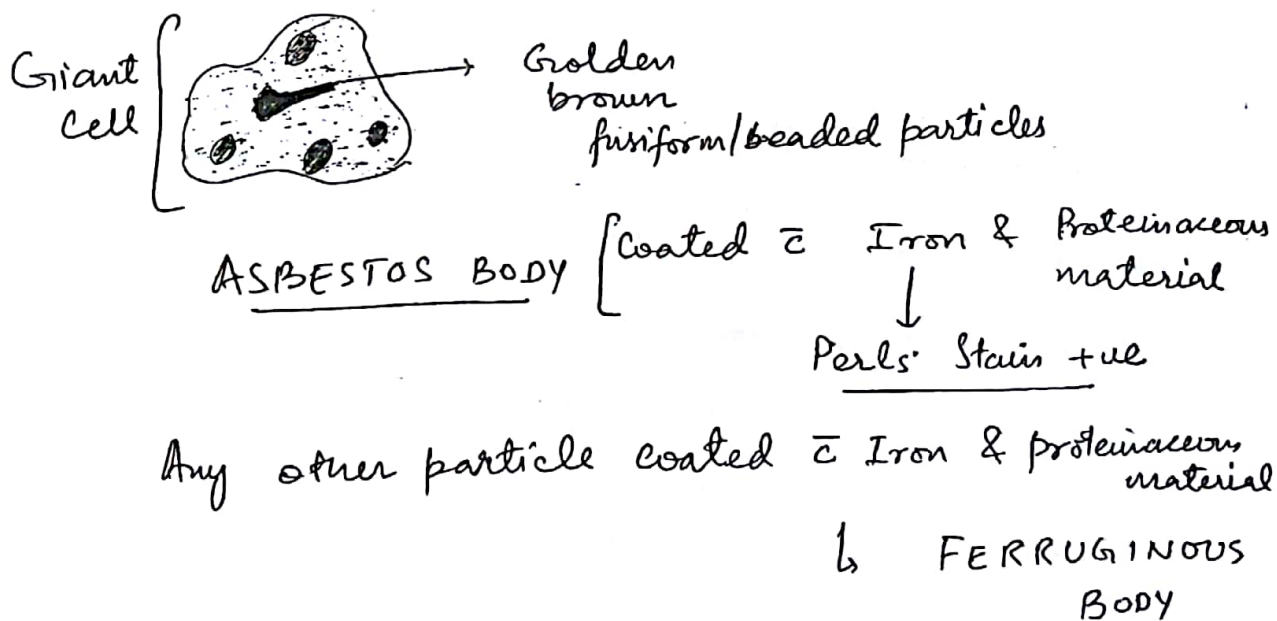 Giant
cell
Golden
brown
fusiform/beaded particles
ASBESTOS BODY
Coated c̄ Iron & Proteinaceous
material
↓
Perls' Stain +ve
Any other particle coated c̄ Iron & proteinaceous
material
↳ FERRUGINOUS
BODY